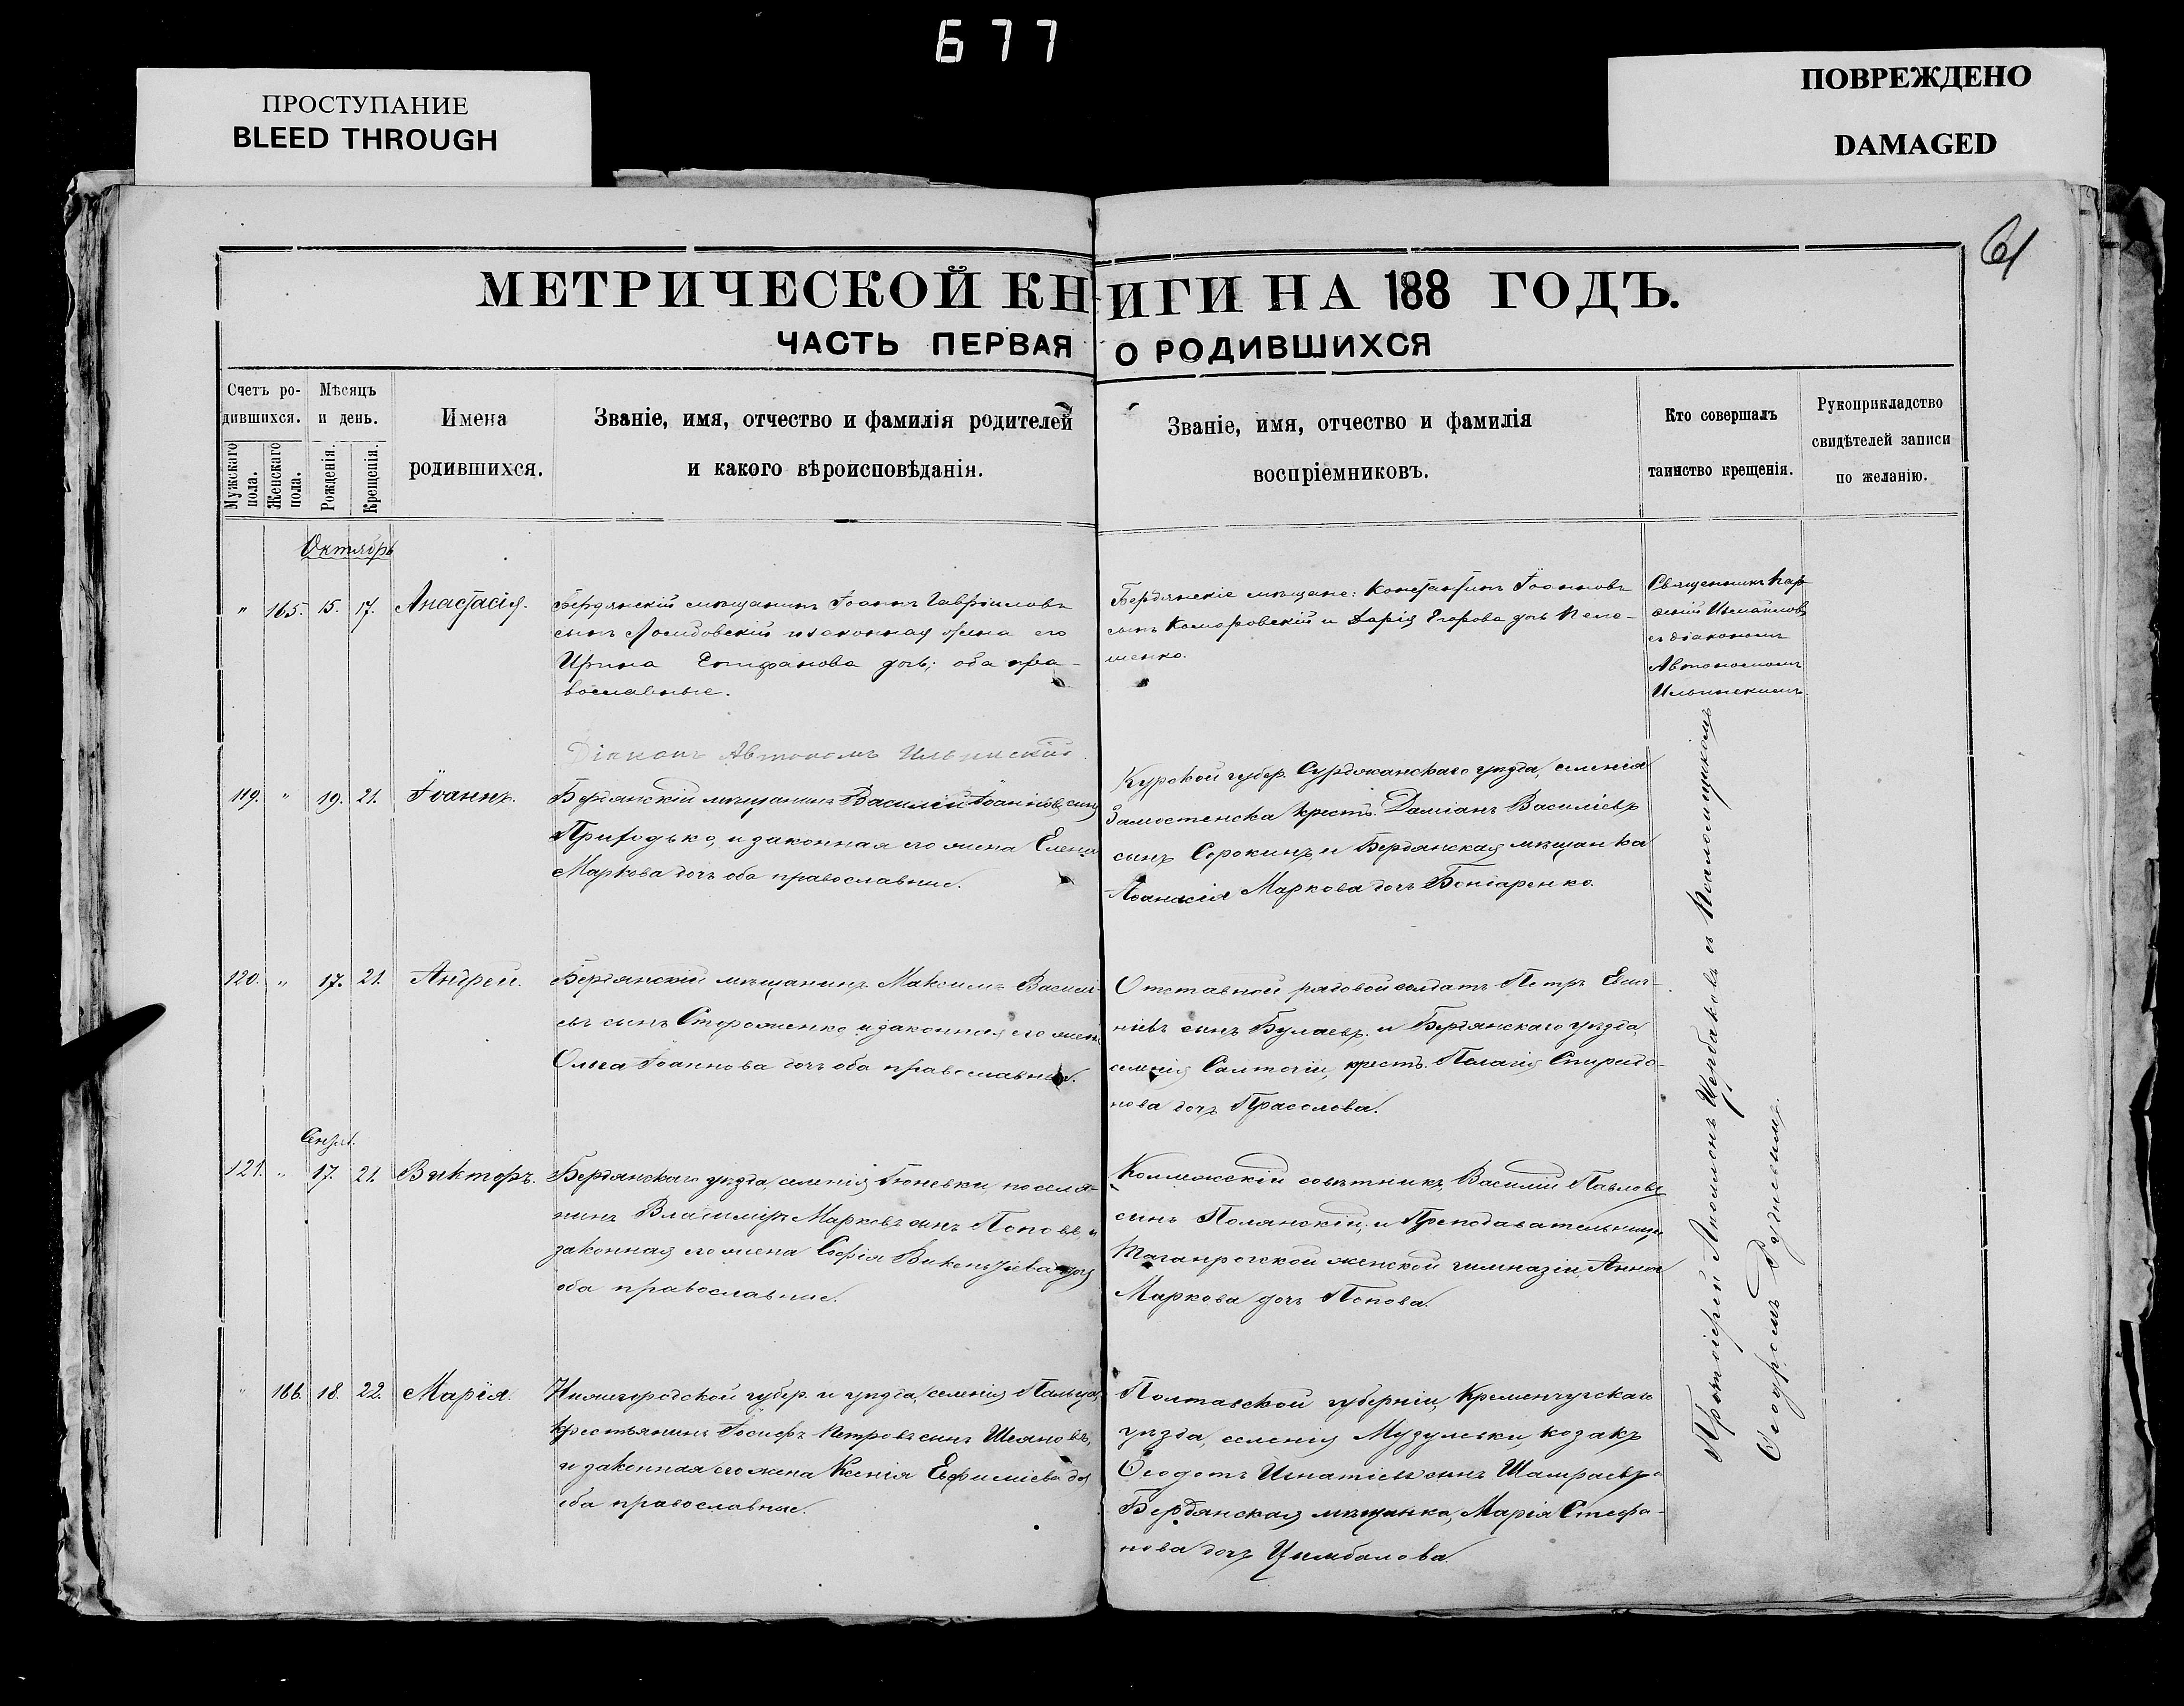 677
ПРОСТУПАНИЕ
BLEED THROUGH
ПОВРЕЖДЕНО
DAMAGED
61
МЕТРИЧЕСКОЙ КНИГИ НА 188 ГОДЪ.
ЧАСТЬ ПЕРВАЯ О РОДИВШИХСЯ
Счетъ ро-
дившихся.
Мужскаго пола.
Женскаго пола.
Мѣсяцъ
и день.
Рожденія.
Крещенія.
Имена
родившихся.
Званіе, имя, отчество и фамилія родителей
и какого вѣроисповѣданія.
Званіе, имя, отчество и фамилія
воспріемниковъ.
Кто совершалъ
таинство крещенія.
Рукоприкладство
свидѣтелей записи
по желанію.
Октябрь
" 165. 15. 17. Анастасія.
Бердянскій мѣщанинъ Іоаннъ Гавріиловъ
сынъ и законная жена его
Ирина Епифанова дочь; оба пра-
вославные.
Бердянскіе мѣщане: Константинъ Іоанновъ
сынъ Комаровскій и Дарія Егорова дочь
Священникъ
съ діакономъ
Автономомъ
Ильинскимъ.
Діаконъ Автономъ Ильинскій
119. " 19. 21. Іоаннъ.
Бердянскій мѣщанинъ Василій Іоанновъ сынъ
Приходько, и законная его жена Елена
Маркова дочь оба православные.
Курской губер. уѣзда, селенія
Замостенска крест. Даміанъ Василіевъ
сынъ Сорокинъ, и Бердянская мѣщанка
Маркова дочь
120. " 17. 21. Андрей.
Бердянскій мѣщанинъ Максимъ Василі-
евъ сынъ Стороженко, и законная его жена
Ольга Іоаннова дочь оба православные.
Отставной рядовой солдатъ Петръ
сынъ Булаевъ. и Бердянскаго уѣзда,
селенія крест. Пелагія Спиридо-
нова дочь Прасолова.
121. " 17. 21. Викторъ.
Бердянскаго уѣзда, селенія поселя-
нинъ Владиміръ Марковъ сынъ Поповъ, и
законная его жена Софія Викентіева дочь
оба православные.
Коллежскій совѣтникъ, Василій Павловъ
сынъ Полянскій, и Преподавательница
Таганрогской женской гимназіи, Анна
Маркова дочь Попова.
" 166. 18. 22. Марія.
Нижегородской губер. и уѣзда, селенія
крестьянинъ Іосифъ Петровъ сынъ
и законная его жена Ксенія Евфиміева доч
оба православные.
Полтавской губерніи, Кременчугскаго
уѣзда, селенія козакъ
Ѳеодотъ Игнатіевъ сынъ
Бердянская мѣщанка, Марія Стефа-
нова дочь Цымбалова.
Протоіерей Щербаковъ съ Псаломщикомъ
Ѳеодоромъ